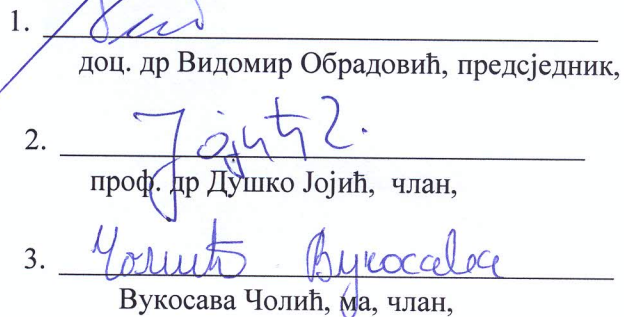 1.
доц. др Видомир Обрадовић, предсједник,
2. Јојић Д.
проф. др Душко Јојић, члан,
3. Чолић Вукосава
Вукосава Чолић, ма, члан,